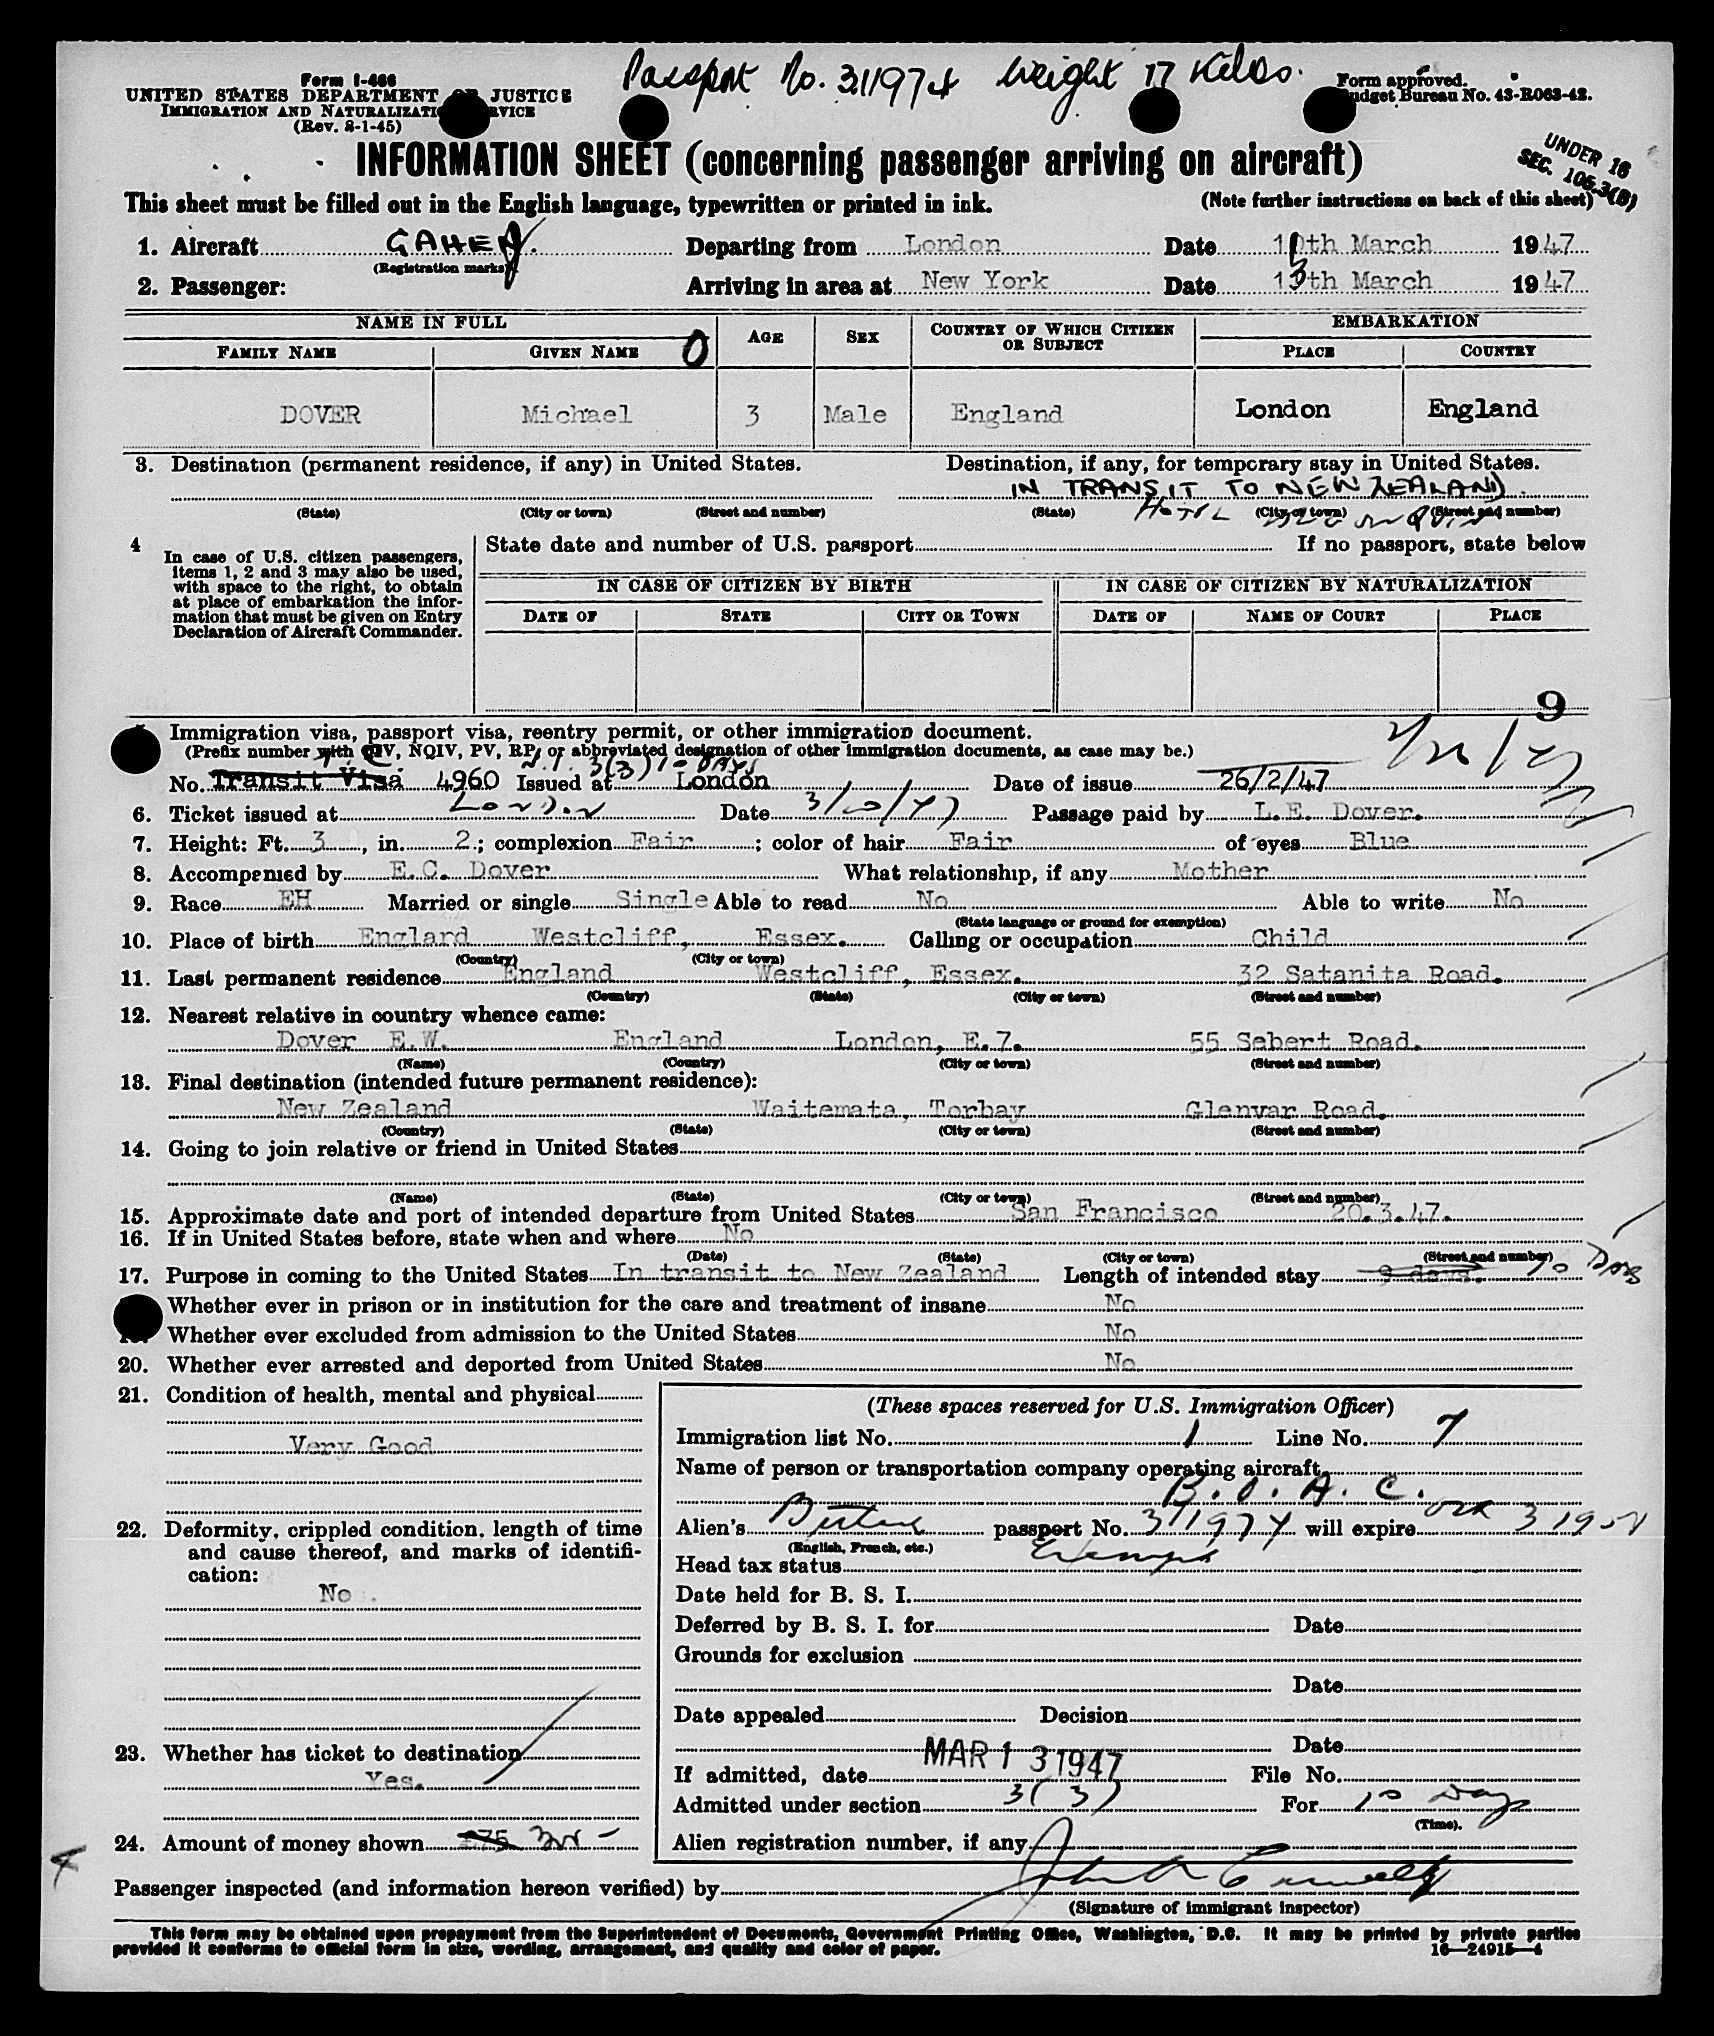 Passport No. 311974 Weight 17 Kilos.
Form I-466
UNITED STATES DEPARTMENT OF JUSTICE
IMMIGRATION AND NATURALIZATION SERVICE
(Rev. 2-1-45)
Form approved.
Budget Bureau No. 43-R063-42.
INFORMATION SHEET (concerning passenger arriving on aircraft)
UNDER 16
SEC. 105.3(B)
This sheet must be filled out in the English language, typewritten or printed in ink.
(Note further instructions on back of this sheet)
1. Aircraft GAHEJ. Departing from London Date 10th March 1947
(Registration marks)
2. Passenger: Arriving in area at New York Date 13th March 1947
NAME IN FULL AGE SEX COUNTRY OF WHICH CITIZEN OR SUBJECT EMBARKATION
FAMILY NAME GIVEN NAME 0 PLACE COUNTRY
DOVER Michael 3 Male England London England
3. Destination (permanent residence, if any) in United States. Destination, if any, for temporary stay in United States.
IN TRANSIT TO NEW ZEALAND.
(State) (City or town) (Street and number) (State) (City or town) (Street and number)
HOTEL
4 In case of U.S. citizen passengers, items 1, 2 and 3 may also be used, with space to the right, to obtain at place of embarkation the information that must be given on Entry Declaration of Aircraft Commander.
State date and number of U.S. passport If no passport, state below
IN CASE OF CITIZEN BY BIRTH IN CASE OF CITIZEN BY NATURALIZATION
DATE OF STATE CITY OR TOWN DATE OF NAME OF COURT PLACE
9
Immigration visa, passport visa, reentry permit, or other immigration document.
(Prefix number with QIV, NQIV, PV, RP, or abbreviated designation of other immigration documents, as case may be.)
3(3) 10 DAYS
No. Transit Visa 4960 Issued at London Date of issue 26/2/47
6. Ticket issued at London Date 3/10/47 Passage paid by L.E. Dover.
7. Height: Ft. 3, in. 2; complexion Fair; color of hair Fair of eyes Blue
8. Accompanied by E.C. Dover What relationship, if any Mother
9. Race EH Married or single Single Able to read No Able to write No
(State language or ground for exemption)
10. Place of birth England Westcliff, Essex. Calling or occupation Child
(Country) (City or town)
11. Last permanent residence England Westcliff, Essex. 32 Satanita Road.
(Country) (State) (City or town) (Street and number)
12. Nearest relative in country whence came:
Dover E.W. England London, E.7. 55 Sebert Road.
(Name) (Country) (City or town) (Street and number)
13. Final destination (intended future permanent residence):
New Zealand Waitemata, Torbay Glenvar Road.
(Country) (State) (City or town) (Street and number)
14. Going to join relative or friend in United States
(Name) (State) (City or town) (Street and number)
15. Approximate date and port of intended departure from United States San Francisco 20.3.47.
16. If in United States before, state when and where No
(Date) (State) (City or town) (Street and number)
17. Purpose in coming to the United States In transit to New Zealand Length of intended stay 9 days. 10 Days
Whether ever in prison or in institution for the care and treatment of insane No
Whether ever excluded from admission to the United States No
20. Whether ever arrested and deported from United States No
21. Condition of health, mental and physical
Very Good
22. Deformity, crippled condition, length of time and cause thereof, and marks of identification:
No.
23. Whether has ticket to destination
Yes.
24. Amount of money shown
(These spaces reserved for U.S. Immigration Officer)
Immigration list No. 1 Line No. 7
Name of person or transportation company operating aircraft
B.O.A.C.
Alien's British passport No. 311974 will expire Oct 3 1951
(English, French, etc.)
Head tax status Exempt
Date held for B. S. I.
Deferred by B. S. I. for Date
Grounds for exclusion
Date
Date appealed Decision
Date
If admitted, date MAR 13 1947 File No.
Admitted under section 3(3) For 10 Days
(Time).
Alien registration number, if any
Passenger inspected (and information hereon verified) by
(Signature of immigrant inspector)
This form may be obtained upon prepayment from the Superintendent of Documents, Government Printing Office, Washington, D.C. It may be printed by private parties
provided it conforms to official form in size, wording, arrangement, and quality and color of paper.
16—24915—4